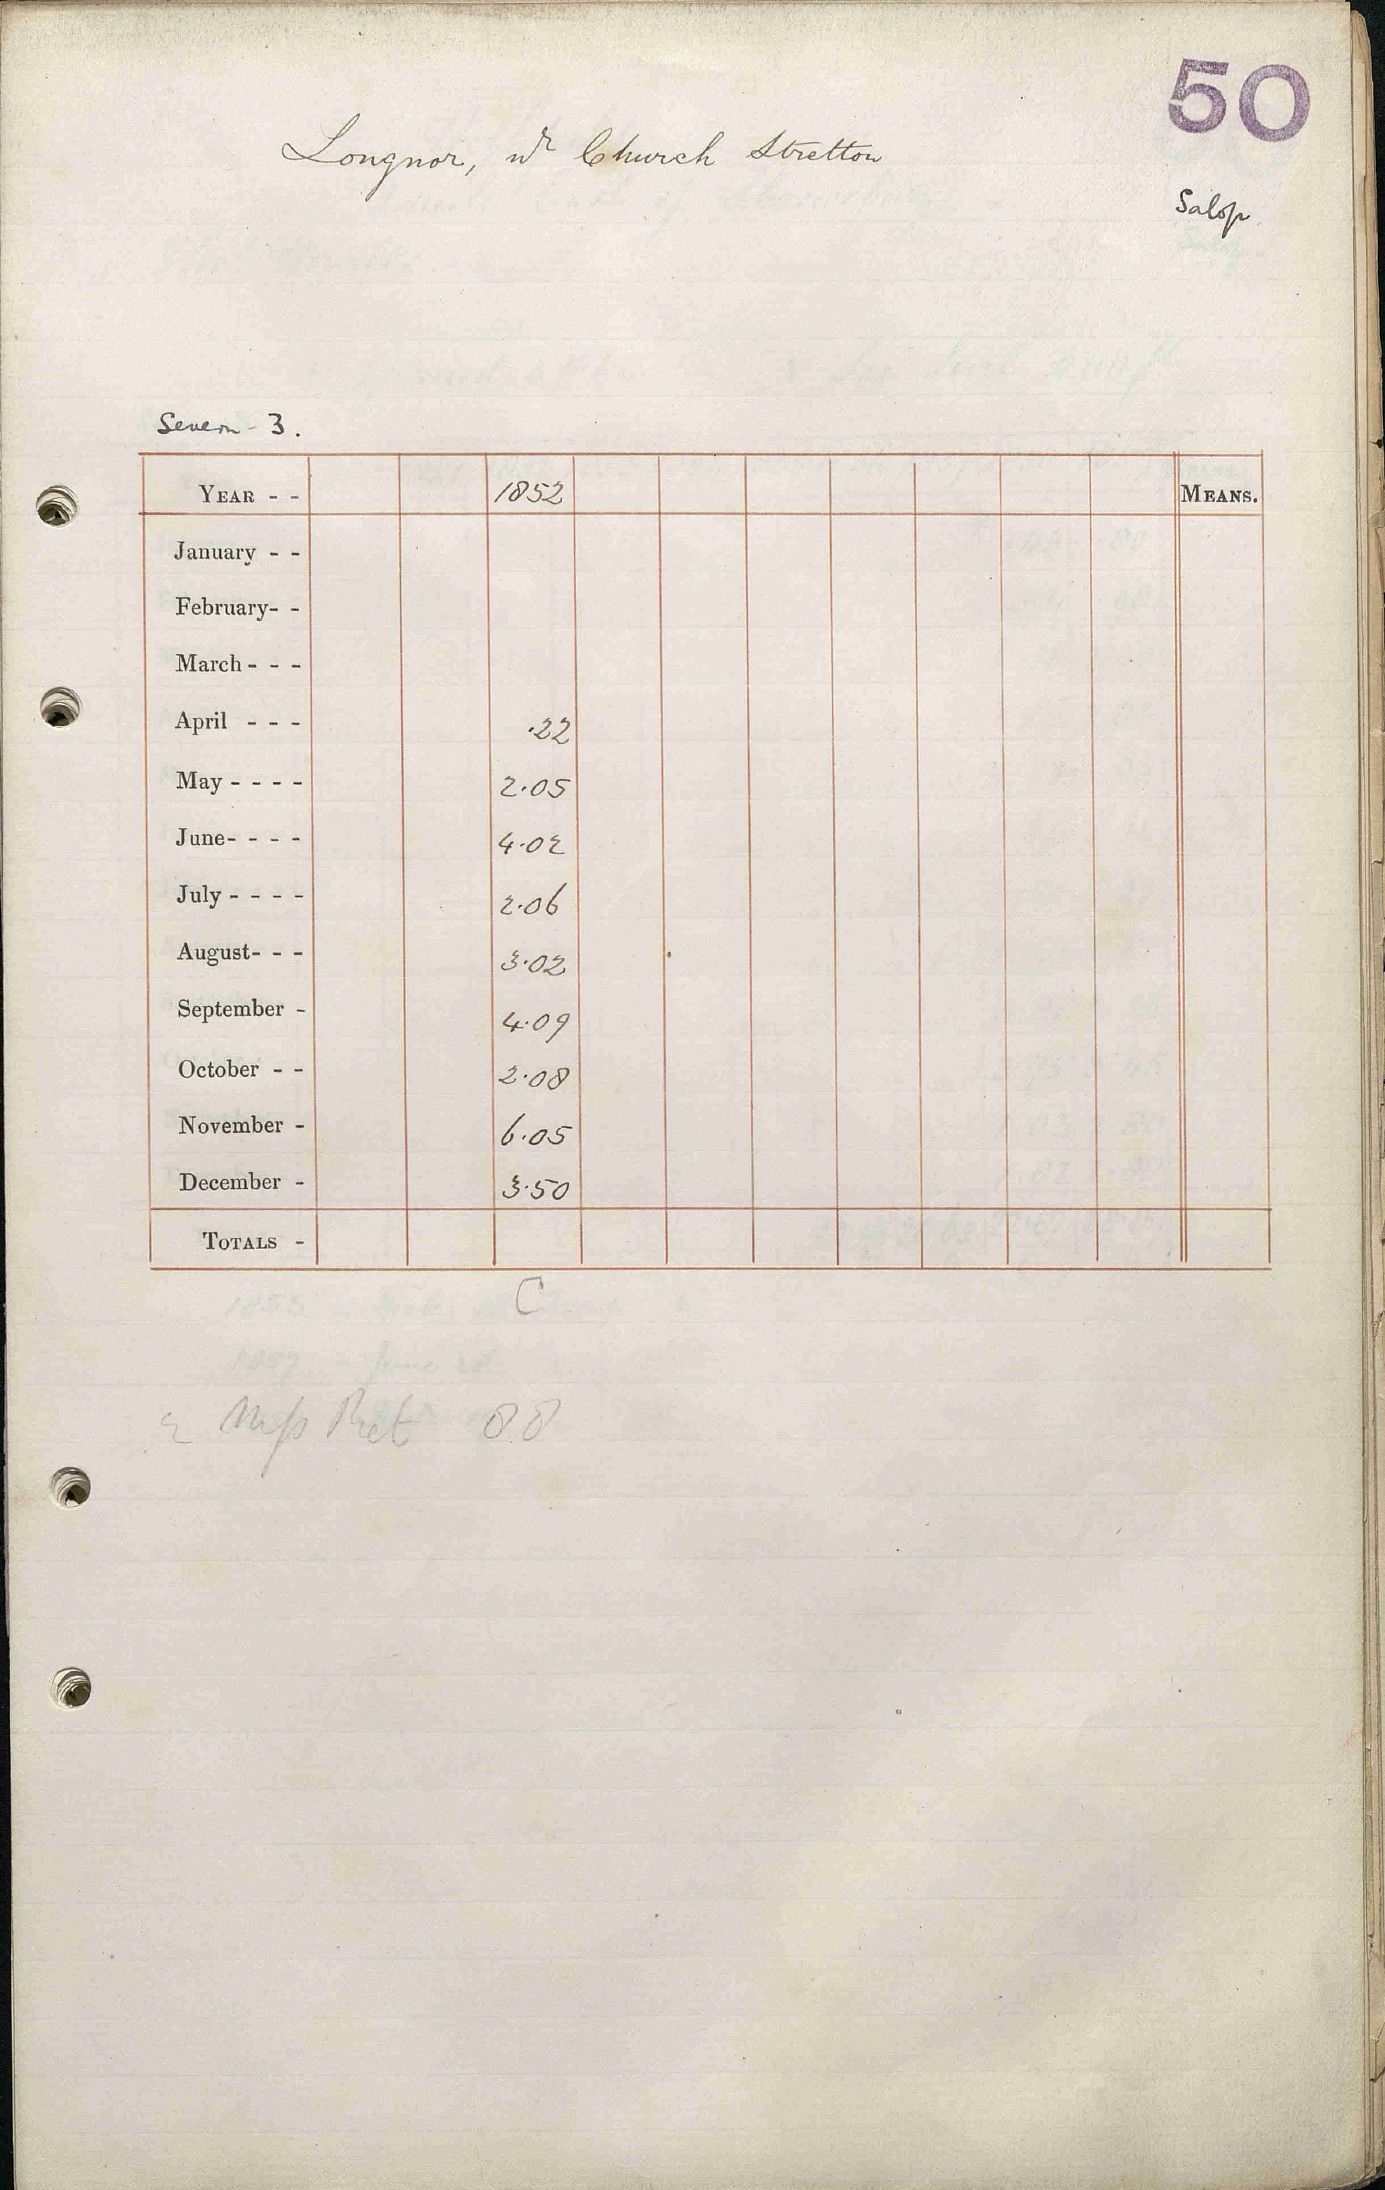 50
Longnor, nr Church Stretton
Salop
Severn - 3.
YEAR - - 1852 MEANS.
January - -
February - -
March - - -
April - - - .22
May - - - - 2.05
June - - - - 4.02
July - - - - 2.06
August - - - 3.02
September - 4.09
October - - 2.08
November - 6.05
December - 3.50
TOTALS -
C
88